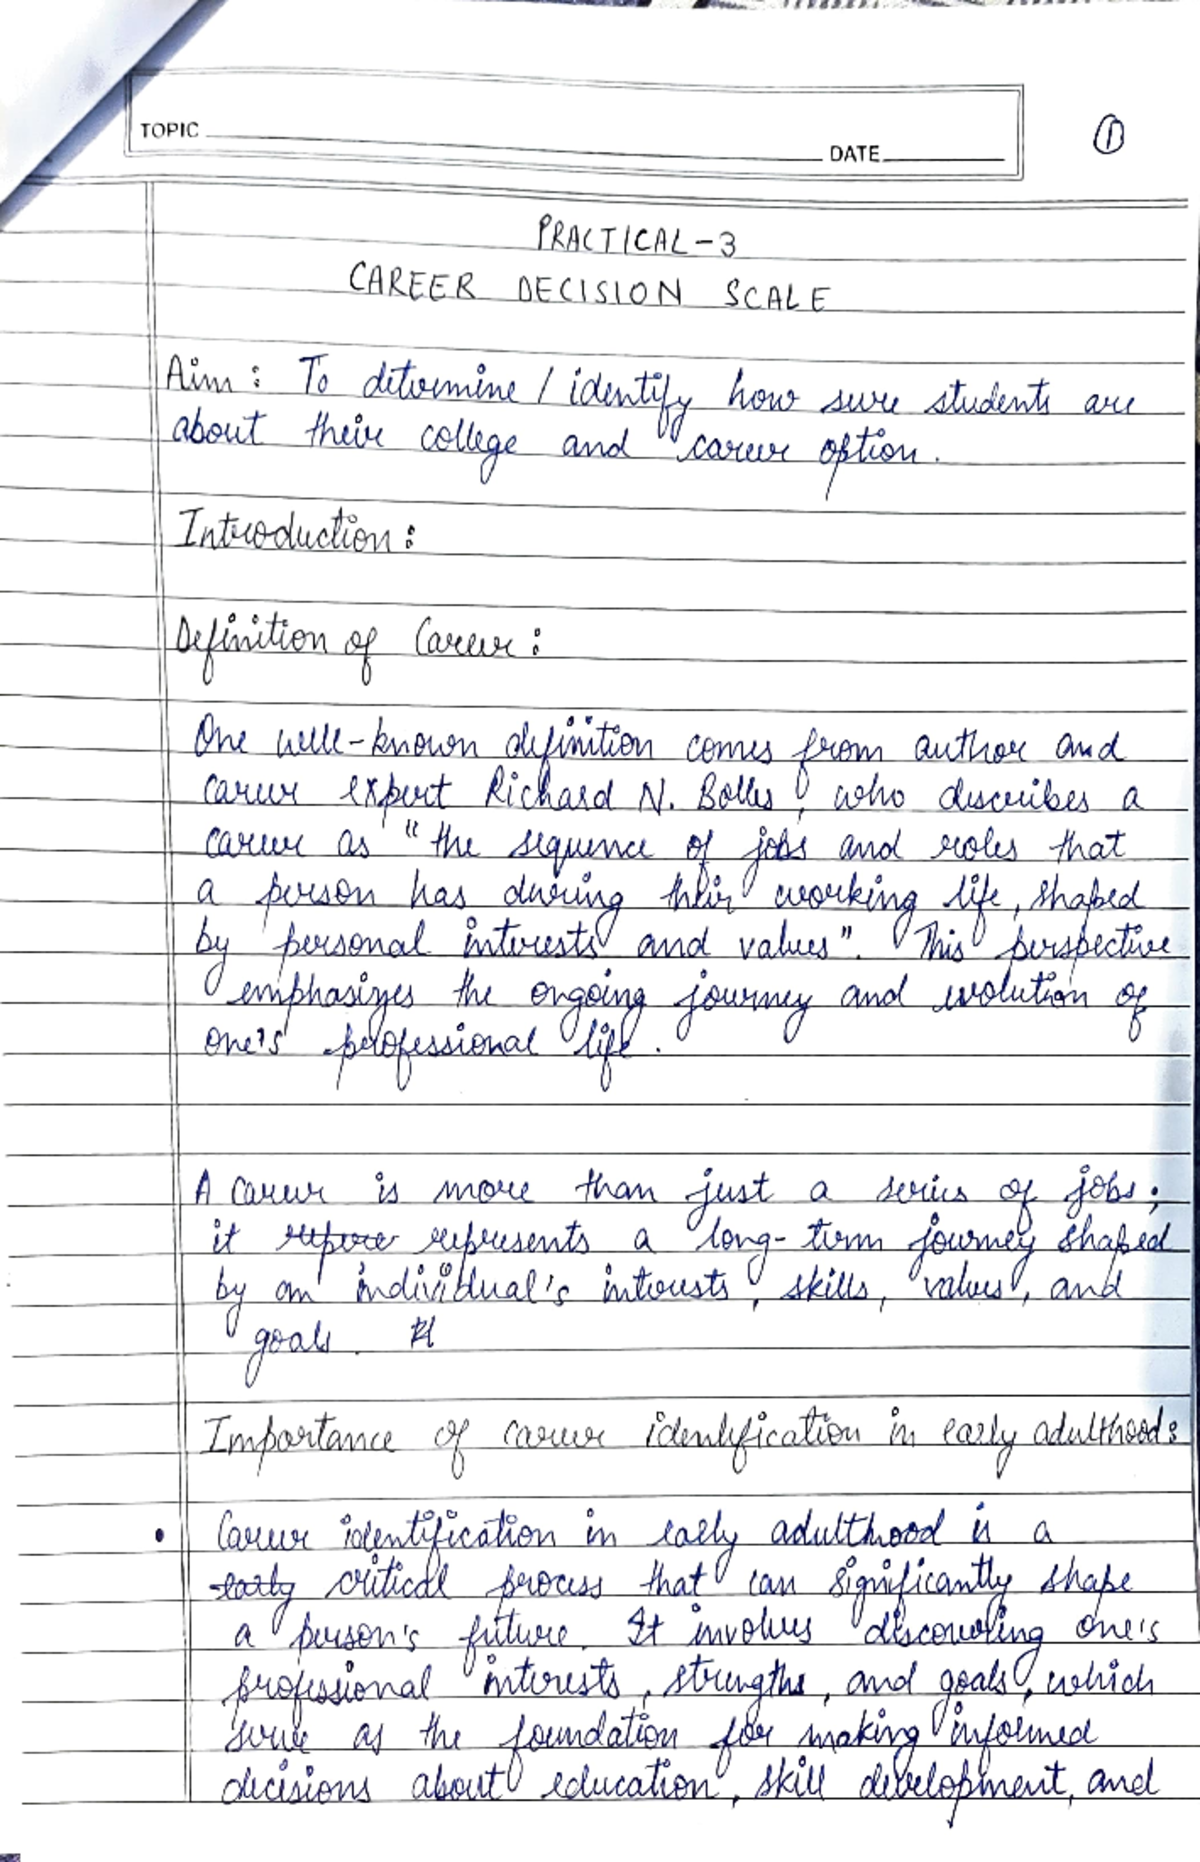 TOPIC
DATE
①
PRACTICAL-3
CAREER DECISION SCALE
Aim: To determine / identify how sure students are
about their college and career option.
Introduction:
Definition of Career:
One well-known definition comes from author and
career expert Richard N. Bolles, who describes a
career as "the sequence of jobs and roles that
a person has during their working life, shaped
by personal interests and values". This perspective
emphasizes the ongoing journey and evolution of
one's professional life.
A career is more than just a series of jobs;
it represents a long-term journey shaped
by an individual's interests, skills, values, and
goals.
Importance of career identification in early adulthood:
• Career identification in early adulthood is a
early critical process that can significantly shape
a person's future. It involves discovering one's
professional interests, strengths, and goals, which
serve as the foundation for making informed
decisions about education, skill development, and